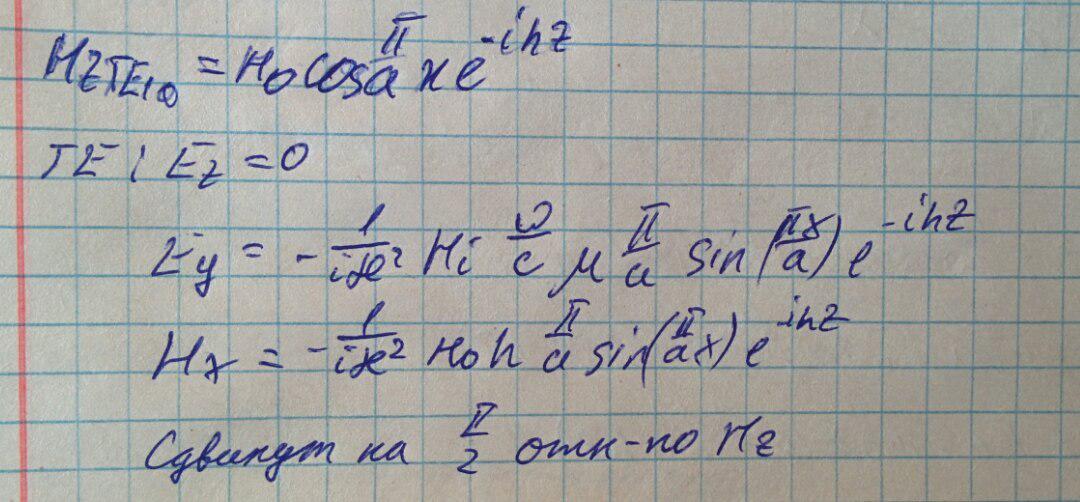 H_{z TE_{10}} = H_0 cos \frac{π}{a} x e^{-ihz}
TE: E_z = 0
E_y = -\frac{1}{iæ^2} H_i \frac{ω}{c} μ \frac{π}{a} sin(\frac{πx}{a}) e^{-ihz}
H_x = -\frac{1}{iæ^2} H_0 h \frac{π}{a} sin(\frac{π}{a}x) e^{-ihz}
Сдвинут на \frac{π}{2} отн-но H_z